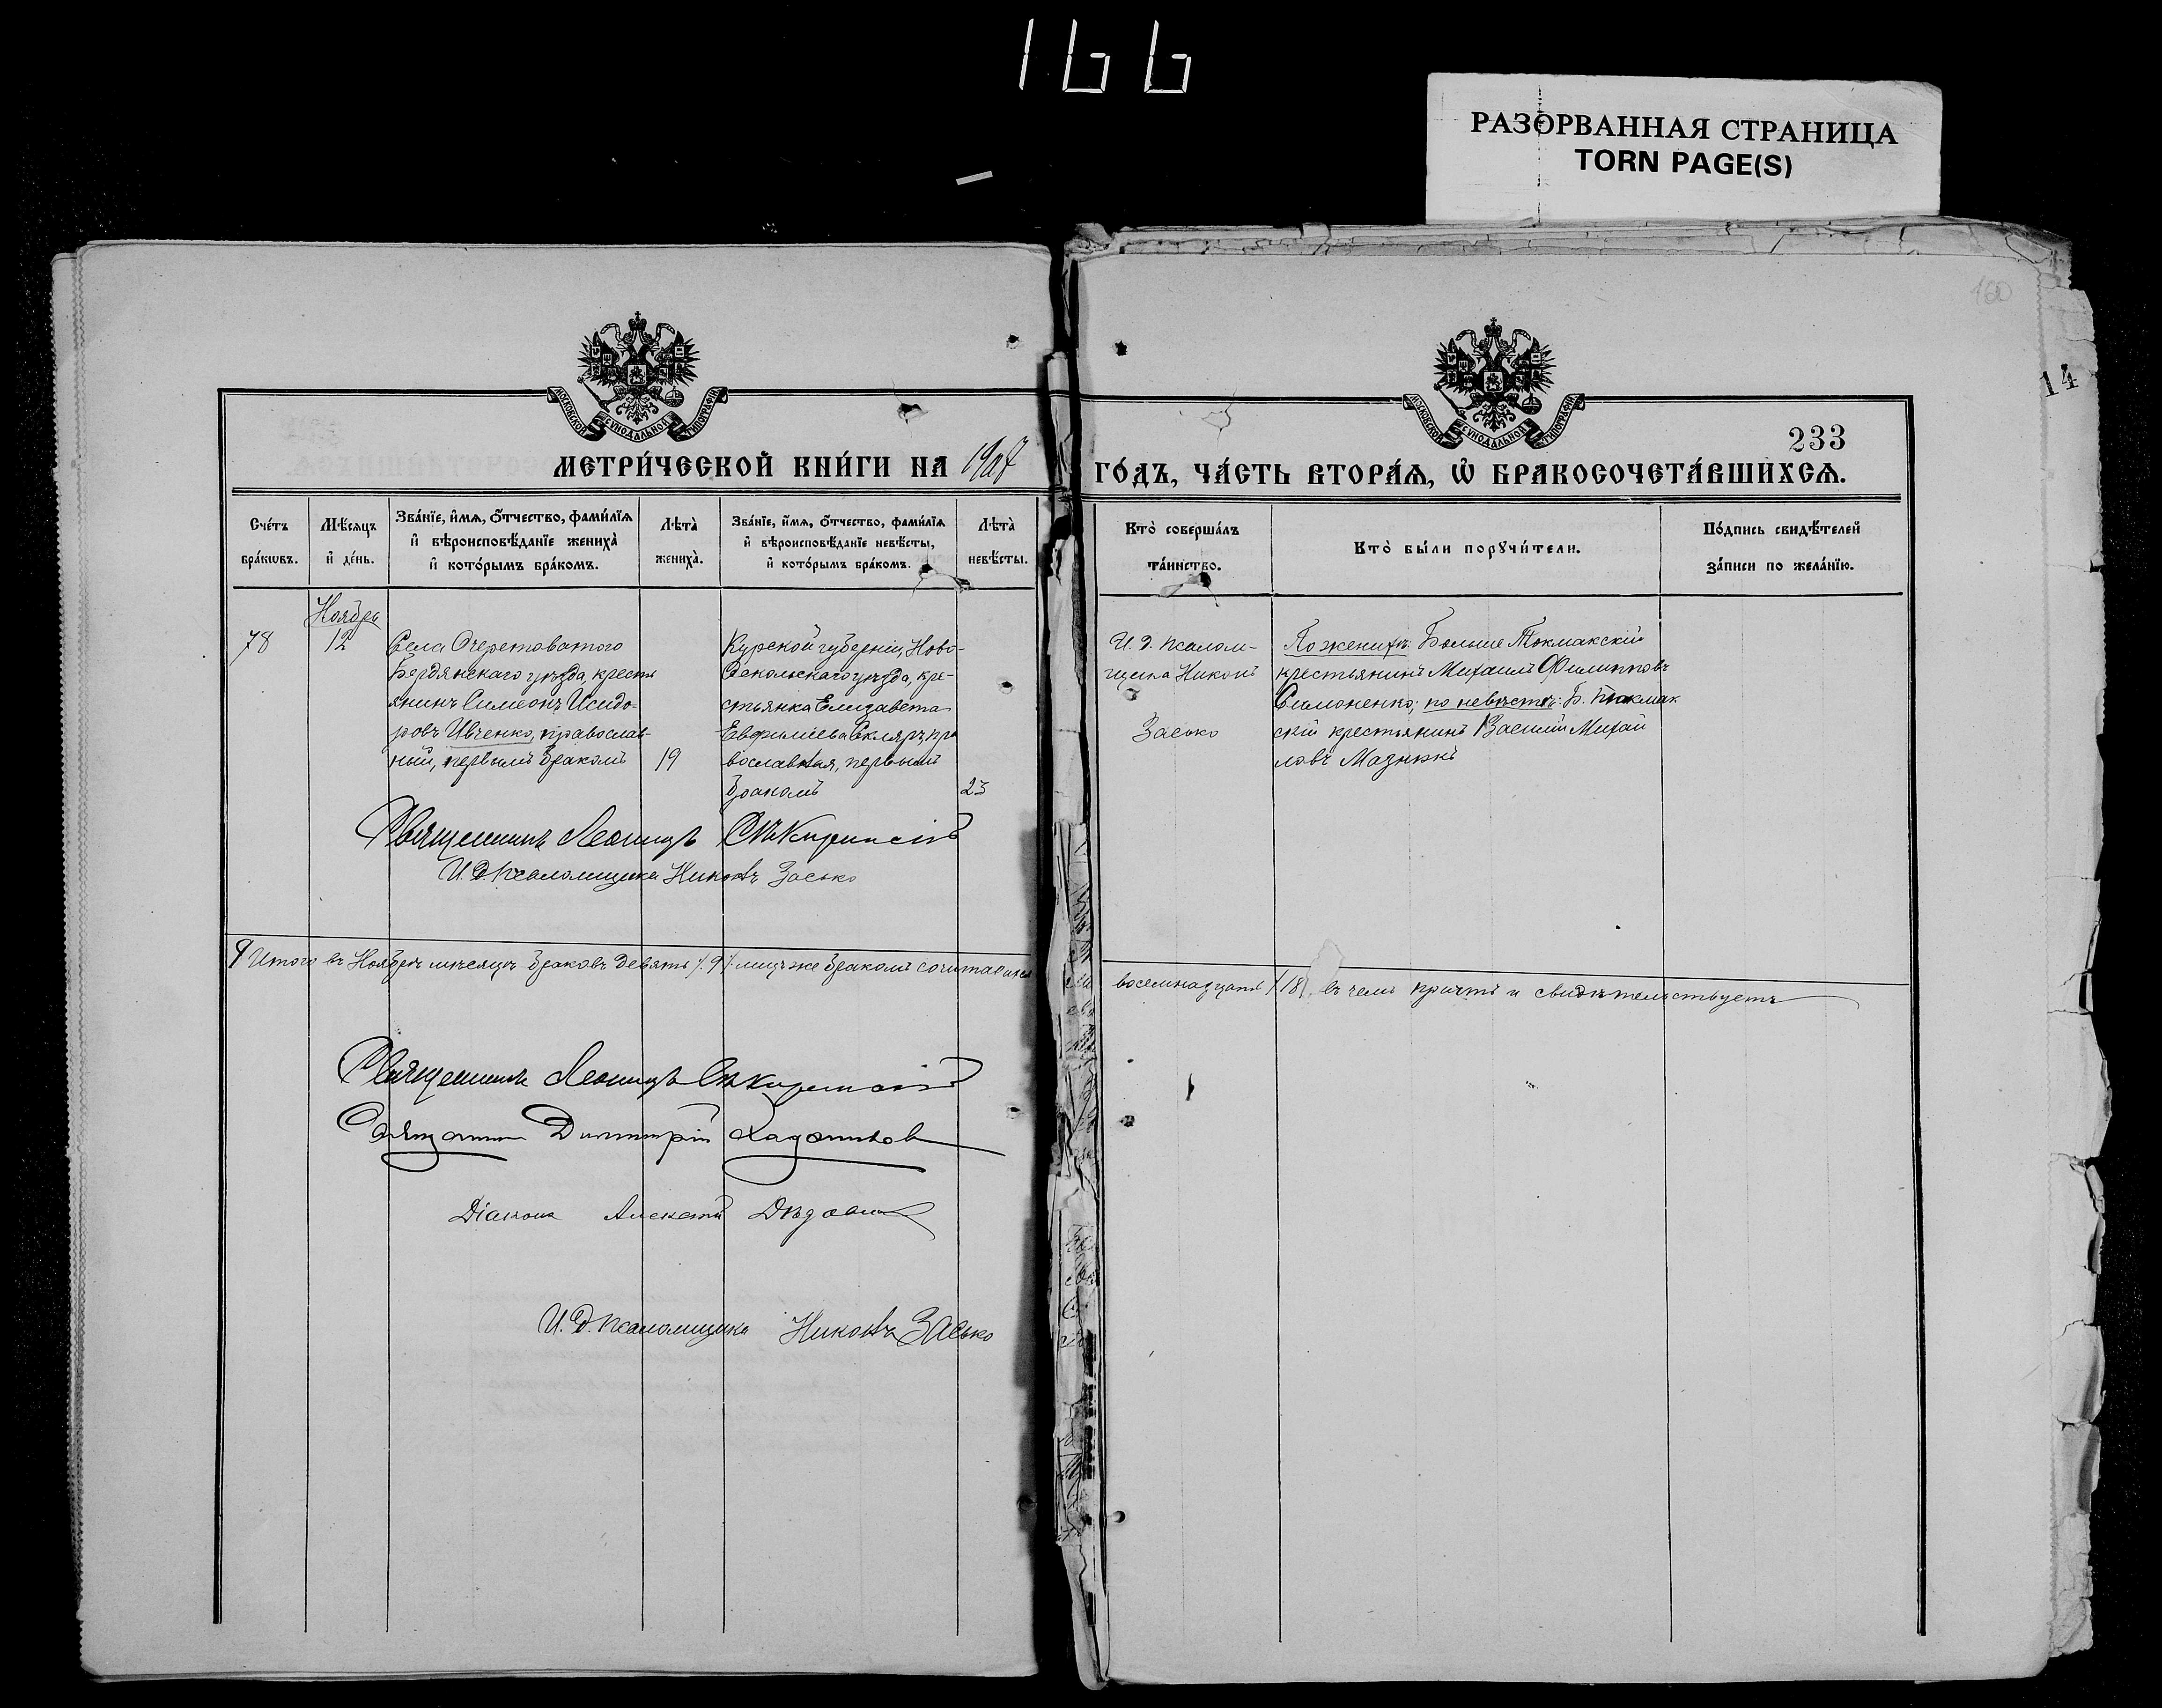 166
РАЗОРВАННАЯ СТРАНИЦА
TORN PAGE(S)
160
14
МОСКОВСКОЙ СѴНОДАЛЬНОЙ ТИПОГРАФІИ
МОСКОВСКОЙ СѴНОДАЛЬНОЙ ТИПОГРАФІИ
233
МЕТРИ́ЧЕСКОЙ КНИ́ГИ НА 1907
ГО́ДЪ, ЧА́СТЬ ВТОРА́Я, Ѡ҆ БРАКОСОЧЕТА́ВШИХСЯ.
Сче́тъ бра́кѡвъ.
Мѣ́сяцъ и҆ де́нь.
Зва́нїе, и҆́мя, ѻ҆́тчество, фами́лїя и҆ вѣроисповѣ́данїе жениха̀ и҆ кото́рымъ бра́комъ.
Лѣта̀ жениха̀.
Зва́нїе, и҆́мя, ѻ҆́тчество, фами́лїя и҆ вѣроисповѣ́данїе невѣ́сты, и҆ кото́рымъ бра́комъ.
Лѣта̀ невѣ́сты.
Кто̀ соверша́лъ та́инство.
Кто̀ бы́ли порꙋчи́тели.
По́дпись свидѣ́телей за́писи по жела́нїю.
Ноябрь
78
12
Села Очеретоватого
Бердянскаго уѣзда, крестья
янинъ Симеонъ Исидо-
ровъ Ивченко, православ-
ный, первымъ бракомъ
19
Курской губерніи, Ново-
Оскольскаго уѣзда, кре-
стьянка Елизавета
Евфиміева Скляръ, пра
вославная, первымъ
бракомъ
23
И. д. псалом-
щика Никонъ
Засько
По женихѣ: Больше Токмакскій
крестьянинъ Михаилъ Филипповъ
Симоненко; по невѣстѣ: Б. Токмак
скій крестьянинъ Василій Михай
ловъ Мазнякъ
Священникъ Леонидъ
И. д. псаломщика Никонъ Засько
9 Итого въ Ноябрѣ мѣсяцѣ браковъ девять /9/ лицъ же бракомъ сочиталися
восемнадцать /18/, въ чемъ причтъ и свидѣтельствуетъ
Священникъ Леонидъ
Священникъ Димитрій
Діаконъ Алексѣй
И. д. псаломщика Никонъ Засько